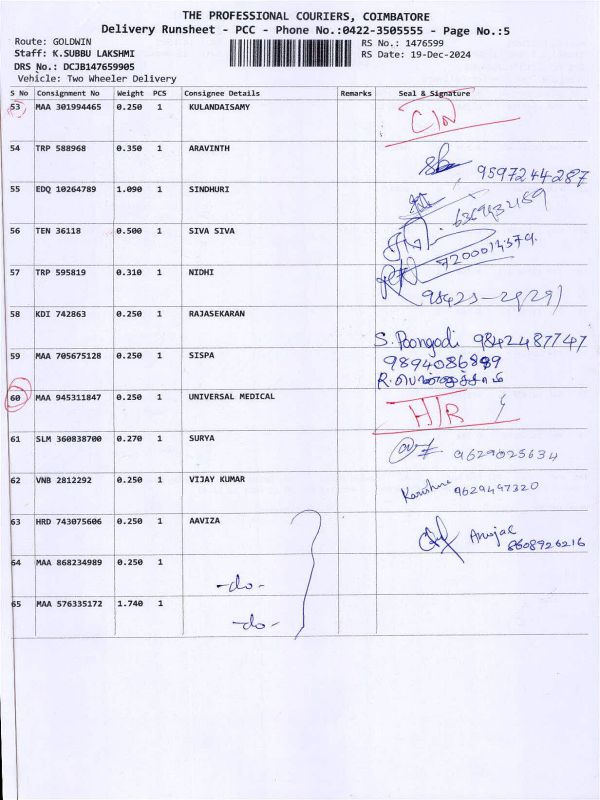 THE PROFESSIONAL COURIERS, COIMBATORE
Delivery Runsheet - PCC - Phone No.:0422-3505555 - Page No.:5
Route: GOLDWIN
RS No.: 1476599
Staff: K.SUBBU LAKSHMI
RS Date: 19-Dec-2024
DRS No.: DCJB147659905
Vehicle: Two Wheeler Delivery
S No Consignment No Weight PCS Consignee Details Remarks Seal & Signature
53 MAA 301994465 0.250 1 KULANDAISAMY
54 TRP 588968 0.350 1 ARAVINTH 9597244287
55 EDQ 10264789 1.090 1 SINDHURI
56 TEN 36118 0.500 1 SIVA SIVA 7200014379
57 TRP 595819 0.310 1 NIDHI
58 KDI 742863 0.250 1 RAJASEKARAN S. Poongodi 9842487747
59 MAA 705675128 0.250 1 SISPA
60 MAA 945311847 0.250 1 UNIVERSAL MEDICAL
61 SLM 360838700 0.270 1 SURYA 9629025634
62 VNB 2812292 0.250 1 VIJAY KUMAR 9629497320
63 HRD 743075606 0.250 1 AAVIZA 8608926216
64 MAA 868234989 0.250 1 -do-
65 MAA 576335172 1.740 1 -do-